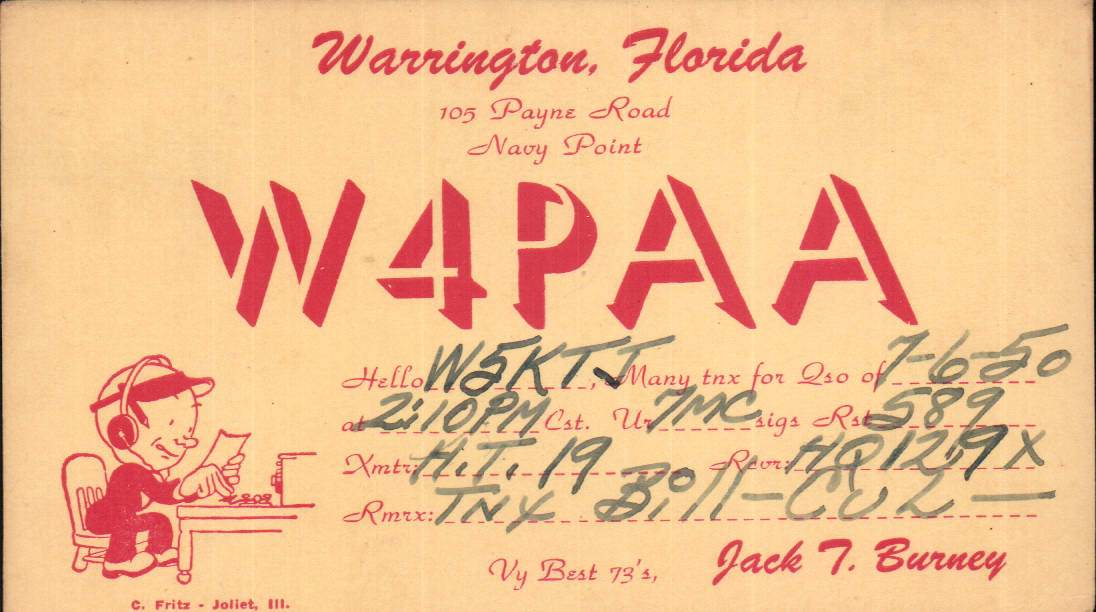 Warrington, Florida
105 Payne Road
Navy Point
W4PAA
Hello W5KTJ, Many tnx for Qso of 7-6-50
at 2:10PM Cst. Ur 7MC sigs Rst 589
Xmtr: H.T. 19 Rcvr: HQ 129X
Rmrx: TNX Bill - CUL -
Vy Best 73's, Jack T. Burney
C. Fritz - Joliet, Ill.